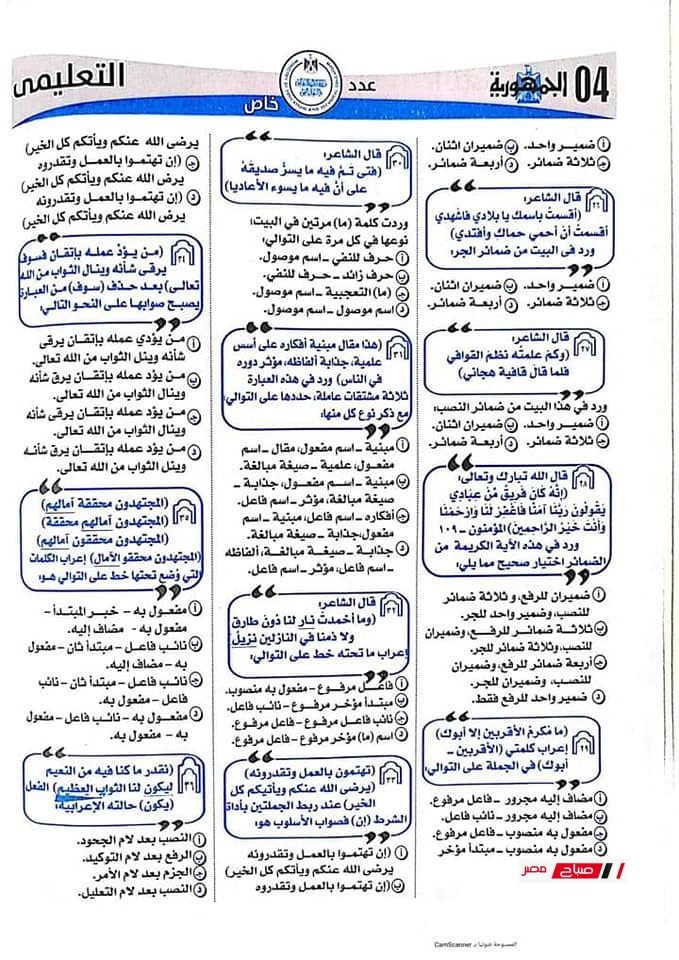 04 الجمهورية
عدد
خاص
التعليمى
أ ضمير واحد. ب ضميران اثنان.
ج ثلاثة ضمائر. د أربعة ضمائر.
٢٦ قال الشاعر:
(أقسمتُ باسمك يا بلادي فاشهدي
أقسمتُ أنْ أحمي حماكِ وأفتدي)
ورد فى البيت من ضمائر الجر:
أ ضمير واحد. ب ضميران اثنان.
ج ثلاثة ضمائر. د أربعة ضمائر.
٢٧ قال الشاعر:
(وكم علمتُه نظمَ القوافي
فلما قال قافية هجاني)
ورد في هذا البيت من ضمائر النصب:
أ ضمير واحد. ب ضميران اثنان.
ج ثلاثة ضمائر. د أربعة ضمائر.
٢٨ قال الله تبارك وتعالى:
(إِنَّهُ كَانَ فَرِيقٌ مِّنْ عِبَادِي
يَقُولُونَ رَبَّنَا آمَنَّا فَاغْفِرْ لَنَا وَارْحَمْنَا
وَأَنتَ خَيْرُ الرَّاحِمِينَ) المؤمنون - ١٠٩
ورد في هذه الآية الكريمة من
الضمائر اختيار صحيح مما يلي:
أ ضميران للرفع، و ثلاثة ضمائر
للنصب، وضمير واحد للجر.
ب ثلاثة ضمائر للرفع، وضميران
للنصب، وثلاثة ضمائر للجر.
ج أربعة ضمائر للرفع، وضميران
للنصب، وضميران للجر.
د ضمير واحد للرفع فقط.
٢٩ (ما مُكرمُ الأقربين إلا أبوك)
إعراب كلمتي (الأقربين -
أبوك) في الجملة على التوالي:
أ مضاف إليه مجرور - فاعل مرفوع.
ب مضاف إليه مجرور - نائب فاعل.
ج مفعول به منصوب - فاعل مرفوع.
د مفعول به منصوب - مبتدأ مؤخر
٣٠ قال الشاعر:
(فتى تمَّ فيه ما يسرُّ صديقَهُ
على أنَّ فيه ما يسوء الأعاديا)
وردت كلمة (ما) مرتين في البيت؛
نوعها في كل مرة على التوالي:
أ حرف للنفي - اسم موصول.
ب حرف زائد - حرف للنفي.
ج (ما) التعجبية - اسم موصول.
د اسم موصول - اسم موصول.
٣١ (هذا مقال مبنية أفكاره على أسس
علمية، جذابة ألفاظه، مؤثر دوره
في الناس) ورد في هذه العبارة
ثلاثة مشتقات عاملة، حددها على التوالي
مع ذكر نوع كل منها:
أ مبنية - اسم مفعول، مقال - اسم
مفعول، علمية - صيغة مبالغة.
ب مبنية - اسم مفعول، جذابة -
صيغة مبالغة، مؤثر - اسم فاعل.
ج أفكاره - اسم فاعل، مبنية - اسم
مفعول، جذابة - صيغة مبالغة.
د جذابة - صيغة مبالغة، ألفاظه
- اسم فاعل، مؤثر - اسم فاعل.
٣٢ قال الشاعر:
(وما أُخمدتْ نار لنا دُونَ طارق
ولا ذمنا في النازلين نزيلُ)
إعراب ما تحته خط على التوالي:
أ فاعل مرفوع - مفعول به منصوب.
ب مبتدأ مؤخر مرفوع - نائب فاعل.
ج نائب فاعل مرفوع - فاعل مرفوع.
د اسم (ما) مؤخر مرفوع - فاعل مرفوع.
٣٣ (تهتمون بالعمل وتقدرونه)
(يرضى الله عنكم ويأتيكم كل
الخير) عند ربط الجملتين بأداة
الشرط (إن) فصواب الأسلوب هو:
أ (إن تهتموا بالعمل وتقدرونه
يرضى الله عنكم ويأتكم كل الخير)
ب (إن تهتموا بالعمل وتقدروه
يرضى الله عنكم ويأتكم كل الخير)
ج (إن تهتموا بالعمل وتقدروه
يرض الله عنكم ويأتكم كل الخير)
د (إن تهتموا بالعمل وتقدرونه
يرض الله عنكم ويأتكم كل الخير)
٣٤ (من يؤدِّ عمله بإتقان فسوف
يرقى شأنه وينال الثواب من الله
تعالى) بعد حذف (سوف) من العبارة
يصبح صوابها على النحو التالي:
أ من يؤدي عمله بإتقان يرقى
شأنه وينل الثواب من الله تعالى.
ب من يؤد عمله بإتقان يرق شأنه
وينل الثواب من الله تعالى.
ج من يؤد عمله بإتقان يرق شأنه
وينال الثواب من الله تعالى.
د من يؤد عمله بإتقان يرقى شأنه
وينل الثواب من الله تعالى.
٣٥ (المجتهدون محققة آمالهم)
(المجتهدون آمالهم محققة)
(المجتهدون محققون آمالهم)
(المجتهدون محققو الآمال) إعراب الكلمات
التي وُضع تحتها خط على التوالي هو:
أ مفعول به - خبر المبتدأ -
مفعول به - مضاف إليه.
ب نائب فاعل - مبتدأ ثان - مفعول
به - مضاف إليه.
ج نائب فاعل - مبتدأ ثان - نائب
فاعل - مفعول به.
د مفعول به - نائب فاعل - مفعول
به - مفعول به.
٣٦ (نقدر ما كنا فيه من النعيم
ليكون لنا الثواب العظيم) الفعل
(يكون) حالته الإعرابية:
أ النصب بعد لام الجحود.
ب الرفع بعد لام التوكيد.
ج الجزم بعد لام الأمر.
د النصب بعد لام التعليل.
صباح مصر
الممسوحة ضوئيا بـ CamScanner